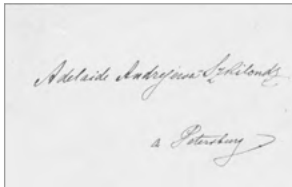 Adelaide Andrejewa Szkilondz
a Petersburg